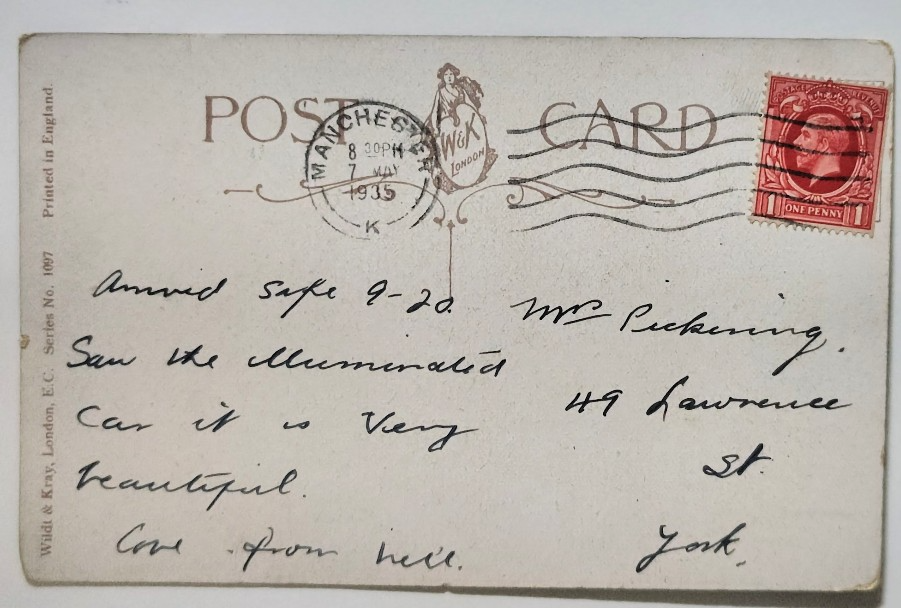 POST CARD
W&K
LONDON
MANCHESTER
8 30PM
7 MAY
1935
K
POSTAGE REVENUE
1 ONE PENNY 1
Arrived safe 9-20.
Saw the Illuminated
Car it is Very
beautiful.
Love from Nell.
Mrs Pickering.
49 Lawrence
St.
York.
Wildt & Kray, London, E.C. Series No. 1097 Printed in England.